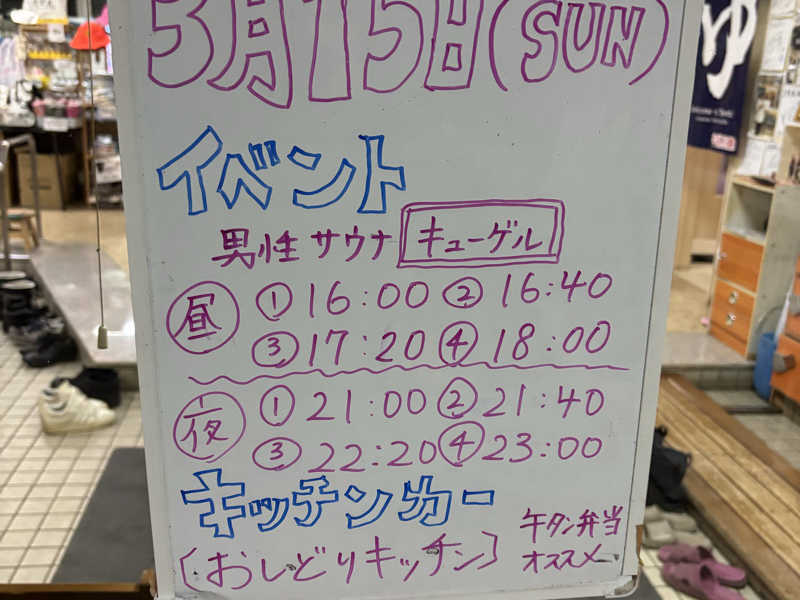 3月15日(SUN)
イベント
男性 サウナ キューゲル
昼 ① 16:00 ② 16:40
③ 17:20 ④ 18:00
夜 ① 21:00 ② 21:40
③ 22:20 ④ 23:00
キッチンカー
[おしどりキッチン]
牛タン弁当
オススメ
ゆ